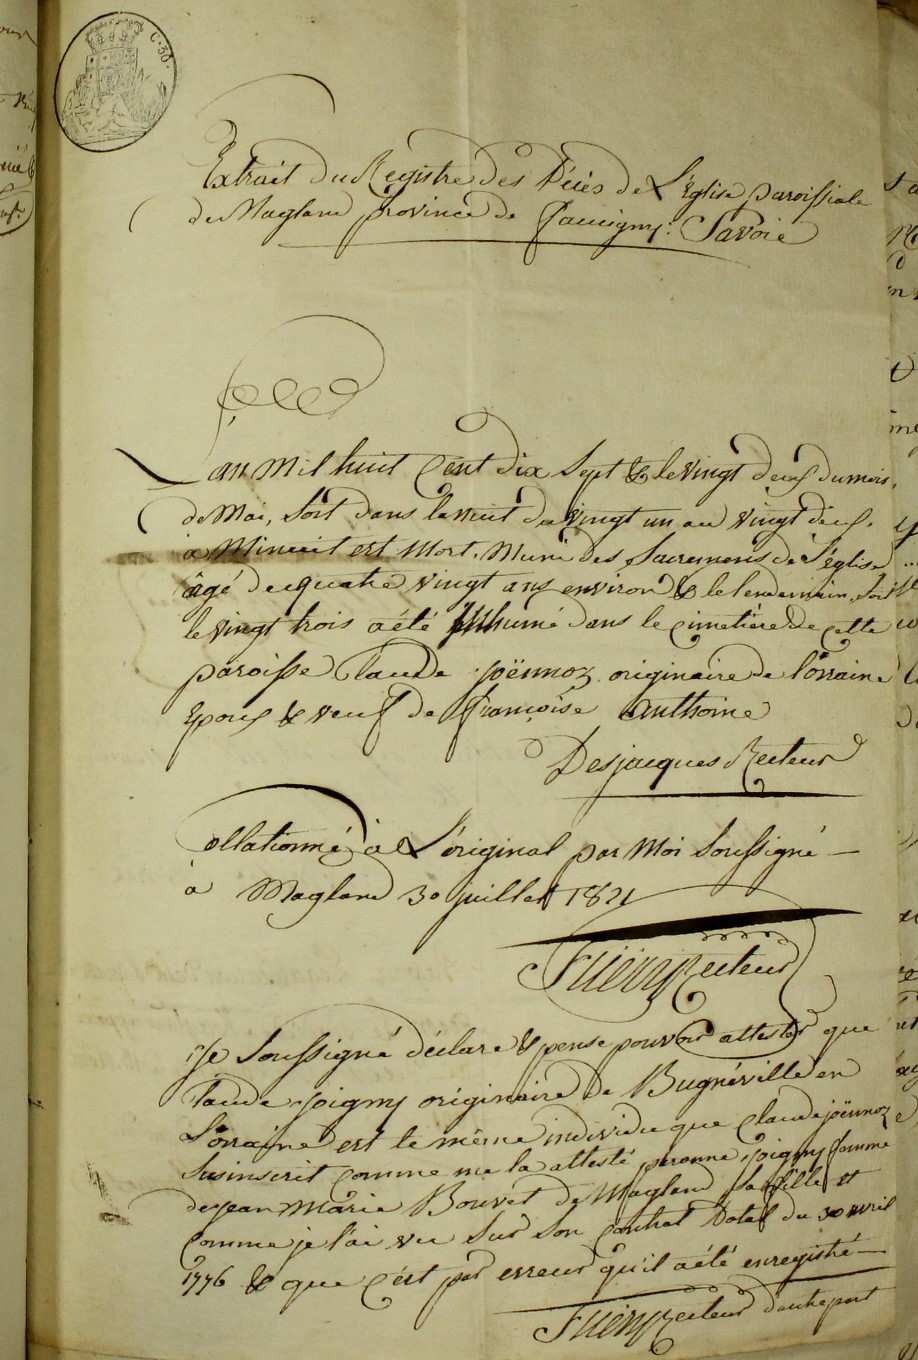 C. 30.
Extrait du Registre des Décès de L'Église paroissiale
de Magland province de faucigny : Savoie
L'an mil huit Cent dix Sept & le vingt deux du mois
de Mai, soit dans la nuit du vingt un au vingt deux.
à Minuit est Mort. Muni des Sacremens de l'église
âgé de quatre vingt ans environ & le lendemain soit
le vingt trois a été Inhumé dans le cimetière de cette
paroisse Claude joënnoz originaire de lorraine
Epoux & veuf de françoise anthoine
Desjacques Recteur
Collationné à L'original par moi soussigné —
à Magland 30 juillet 1821
Recteur
Je Soussigné déclare & pense pouvoir attester que
Claude joigny originaire de Bugnéville en
Lorraine est le même individu que Claude joënnoz
susinscrit comme me la attesté peronne joigny famme
de jean Marie Bouvet de Magland sa fille et
comme je l'ai vu sur son contrat Dotal du 30 avril
1776 & que c'est par erreur qu'il a été enregistré —
Recteur d'autrepart